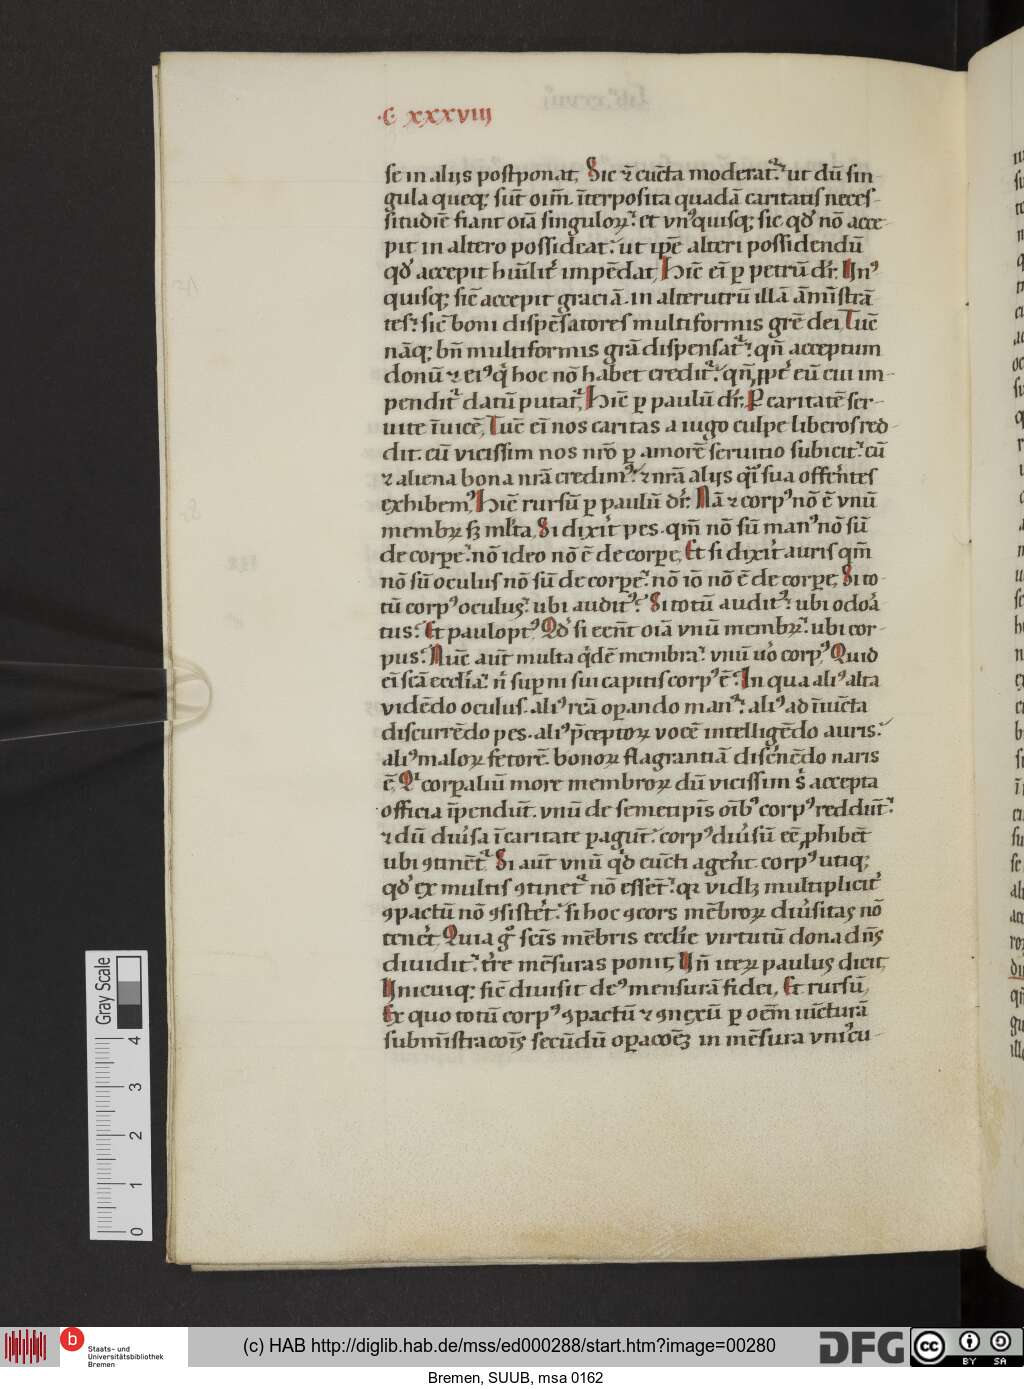 ·C· xxxviij
se in alijs postponat, Sic ⁊ cūcta moderat᷑: ut dū sin-
gula queq; sūt oīm. īterposita quadā caritatis neces-
situdīe fiant oīa singuloꝝ: et vnꝰquisq; sic qd̓ nō acce-
pit in altero possideat: ut ip̄e alteri possidendū
qd̓ accepit hūilit̓ impēdat, Hic̄ eī ꝑ petrū dr̄. Vnꝰ
quisq; sic̄ accepit graciā. in alterutrū illā āmīstrā
tes: sic̄ boni dispēsatores multiformis grē dei, Tūc
nāq; bn̄ multiformis grā dispensat᷑: qn̄ acceptum
donū ⁊ eiꝰ q̓ hoc nō habet credit᷑: qn̄ ꝓpt̓ eū cui im-
pendit᷑ datū putat᷑, Hic̄ ꝑ paulū dr̄. P caritatē ser-
uite īuicē, Tūc eī nos caritas a iugo culpe liberos red-
dit. cū vicissim nos nr̄o ꝑ amorē seruitio subicit: cū
⁊ aliena bona nr̄a credimꝰ: ⁊ nr̄a alijs q̄i sua offerētes
exhibemꝰ, Hic̄ rursū ꝑ paulū dr̄. Nā ⁊ corpꝰ nō ē vnū
membꝝ sꝫ ml̄ta, Si dixit̓ pes. qm̄ nō sū manꝰ nō sū
de corpe: nō ideo nō ē de corpe, Et si dixit̓ auris qm̄
nō sū oculus nō sū de corpe: nō iō nō ē de corpe, Si to-
tū corpꝰ oculus: ubi auditꝰ: Si totū auditꝰ: ubi odoā
tus: Et pauloptꝰ, Qd̓ si eēnt oīa vnū membꝝ: ubi cor-
pus: Nūc aūt multa q̓dē membra: vnū uo̓ corpꝰ, Quid
eī scā ecclīa: n̄ supni sui capitis corpꝰ ē: In qua aliꝰ alta
vidēdo oculus. aliꝰ rcā opando manꝰ: aliꝰ ad iūcta
discurrēdo pes. aliꝰ p̄ceptoꝝ vocē intelligēdo auris:
aliꝰ maloꝝ fetorē. bonoꝝ flagrantiā discn̓ēdo naris
ē, Qi corpaliū more membroꝝ dū vicissim s̓ accepta
officia īpendūt. vnū de semetipīs oībꝰ corpꝰ reddūt:
⁊ dū diūsa ī caritate pagūt: corpꝰ diūsū eē, ꝓhibēt
ubi ꝯtinēt᷑. Si aūt vnū qd̓ cūcti agerēt. corpꝰ utiq;
qd̓ ex multis ꝯtinet᷑ nō essēt: qꝛ vidlꝫ multiplicit̓
ꝯpactū nō ꝯsistēt̓: si hoc ꝯcors mēbroꝝ diūsitas nō
tenēt̓, Quia g̊ scīs mēbris ecclīe virtutū dona dn̄s
diuidit: ēre mēsuras ponit, Vn̄ iteꝝ paulus dicit,
Vnicuiq; sic̄ diuisit deꝰ mensurā fidei, Et rursū,
Ex quo totū corpꝰ ꝯpactū ⁊ ꝯnexū ꝑ oēm iūcturā
submīstracōīs secūdū opacōeꝫ in mēsura vnīcu-
Gray Scale
4
3
2
1
0
Staats- und
Universitätsbibliothek
Bremen
(c) HAB http://diglib.hab.de/mss/ed000288/start.htm?image=00280
DFG
cc
BY SA
Bremen, SUUB, msa 0162